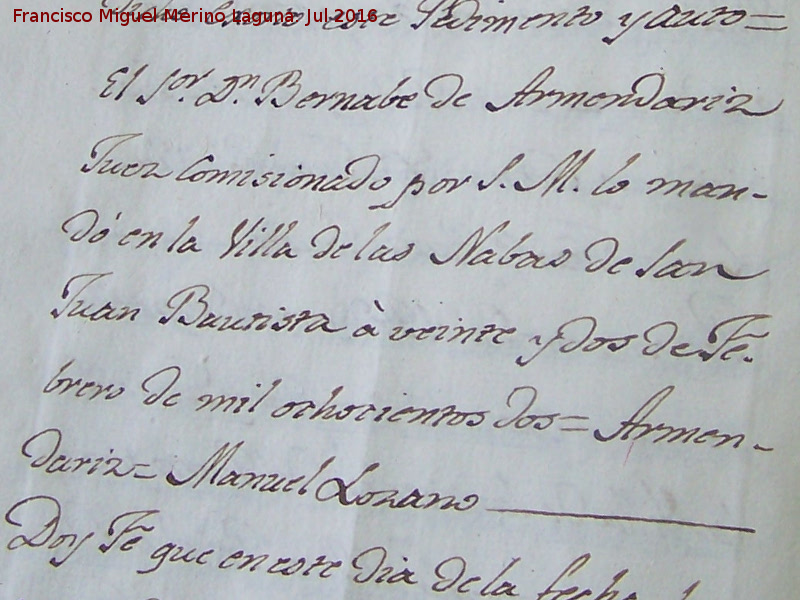 Francisco Miguel Merino Laguna. Jul 2016
este Pedimento y auto=
El Sor. Dn. Bernabe de Armendariz
Juez Comisionado por S. M. lo man-
dó en la Villa de las Nabas de San
Juan Bautista à veinte y dos de Fe-
brero de mil ochocientos dos= Armen-
dariz= Manuel Lozano
Doy Fe que en este dia de la fecha